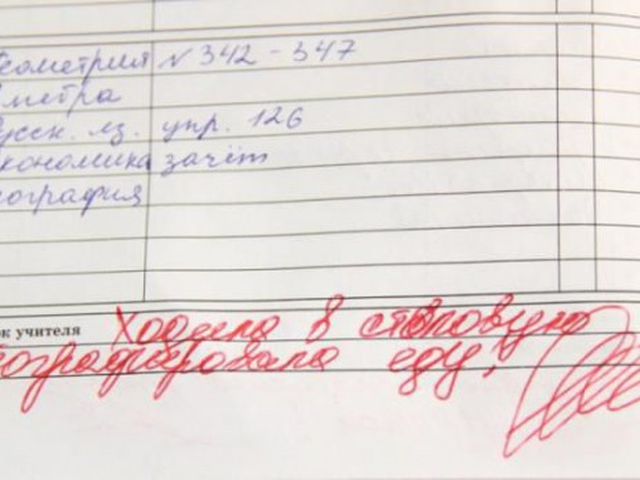 еометрия № 342 - 347
гебра
усск. яз. упр. 126
кономика зачёт
еография
ок учителя Ходила в столовую
тографировала еду!